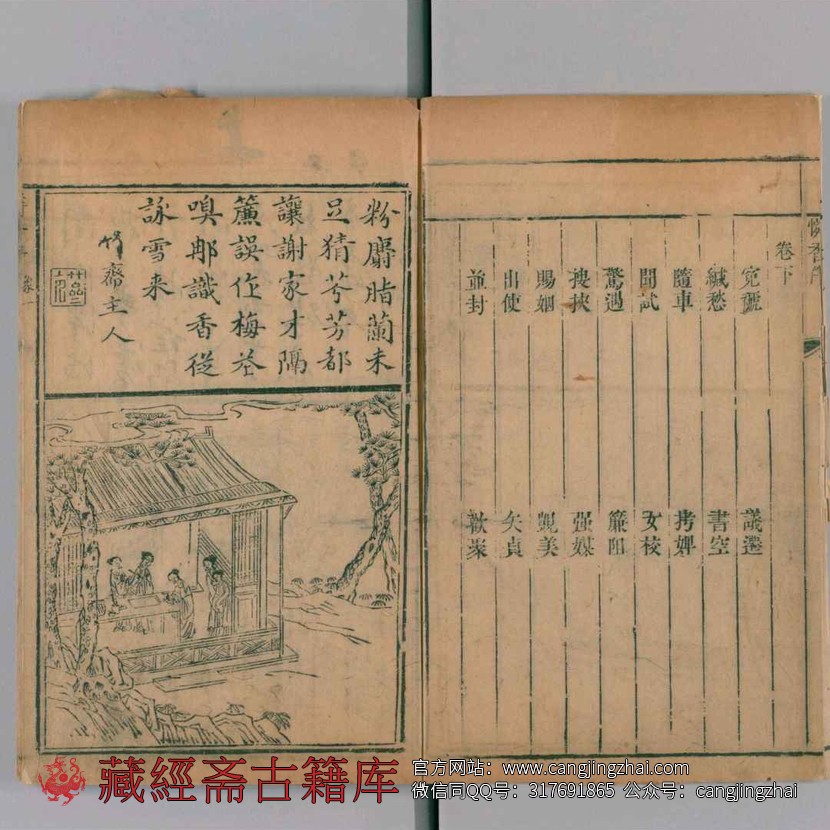 卷下
議遷
緘愁
書空
隨車
拷婢
閨試
女校
驚遇
簾阻
搜挾
强媒
賜姻
覬美
出使
矢貞
並封
歡聚
粉麝脂蘭未
足猜芩芳都
讓謝家才隔
簾誤作梅花
嗅那識香從
詠雪來
齋主人
藏經斋古籍库
官方网站：www.cangjingzhai.com
微信同QQ号：317691865 公众号：cangjingzhai